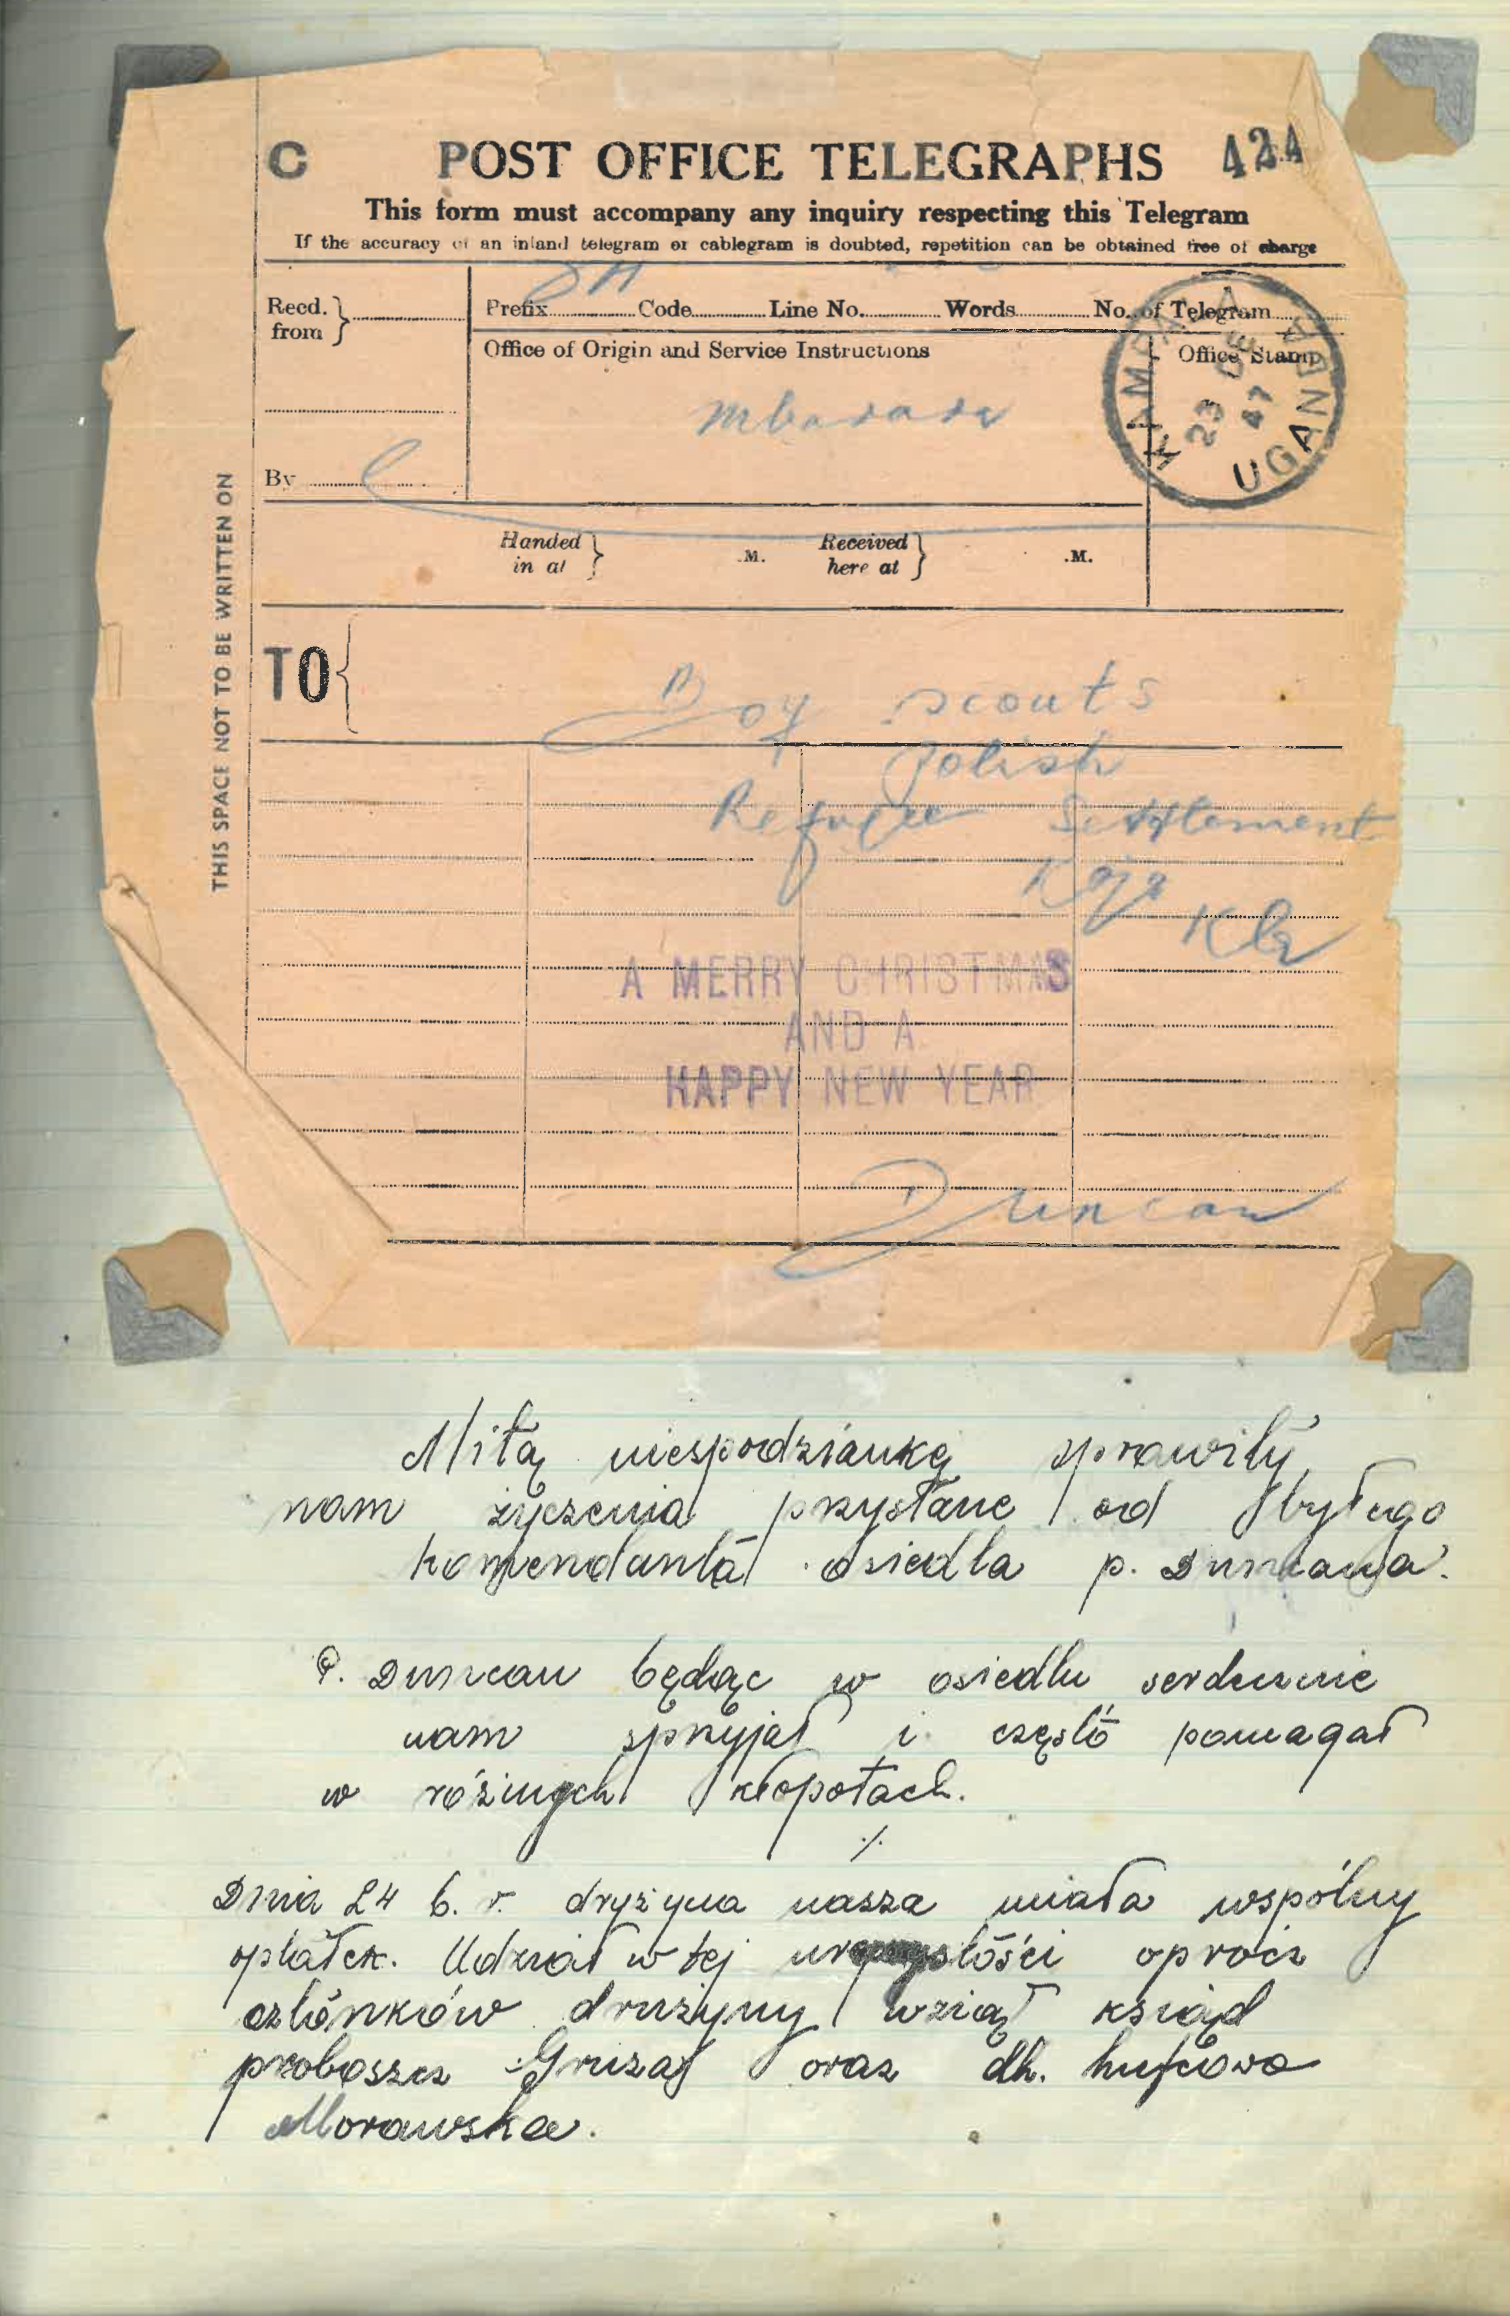 C POST OFFICE TELEGRAPHS 424
This form must accompany any inquiry respecting this Telegram
If the accuracy of an inland telegram or cablegram is doubted, repetition can be obtained free of charge
Recd. from
Prefix Code Line No. Words No. of Telegram
Office of Origin and Service Instructions
Office Stamp
KAMPALA
23 DE
47
UGANDA
Mbarara
By
Handed in at .M. Received here at .M.
THIS SPACE NOT TO BE WRITTEN ON
TO
Boy scouts
Polish
Refugee Settlement
Koja
Kla
A MERRY CHRISTMAS
AND A
HAPPY NEW YEAR
Duncan
Miłą niespodziankę sprawiły
nam życzenia przysłane od byłego
komendanta osiedla p. Duncana.
P. Duncan będąc w osiedlu serdecznie
nam sprzyjał i często pomagał
w różnych kłopotach.
./.
Dnia 24 b. r. dryżyna nasza miała wspólny
opłatek. Udział w tej oprócz
członków drużyny wziął ksiąd
proboszcz oraz dh. hufcowa
Morawska.